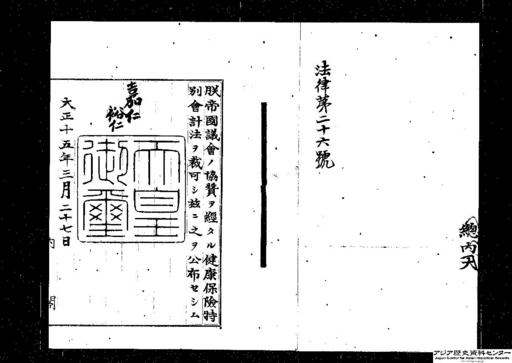 法律第二十六號
總丙天
朕帝國議會ノ協贊ヲ經タル健康保險特
別會計法ヲ裁可シ玆ニ之ヲ公布セシム
嘉仁
裕仁
天皇
御璽
大正十五年三月二十七日
内閣
アジア歴史資料センター
Japan Center for Asian Historical Records